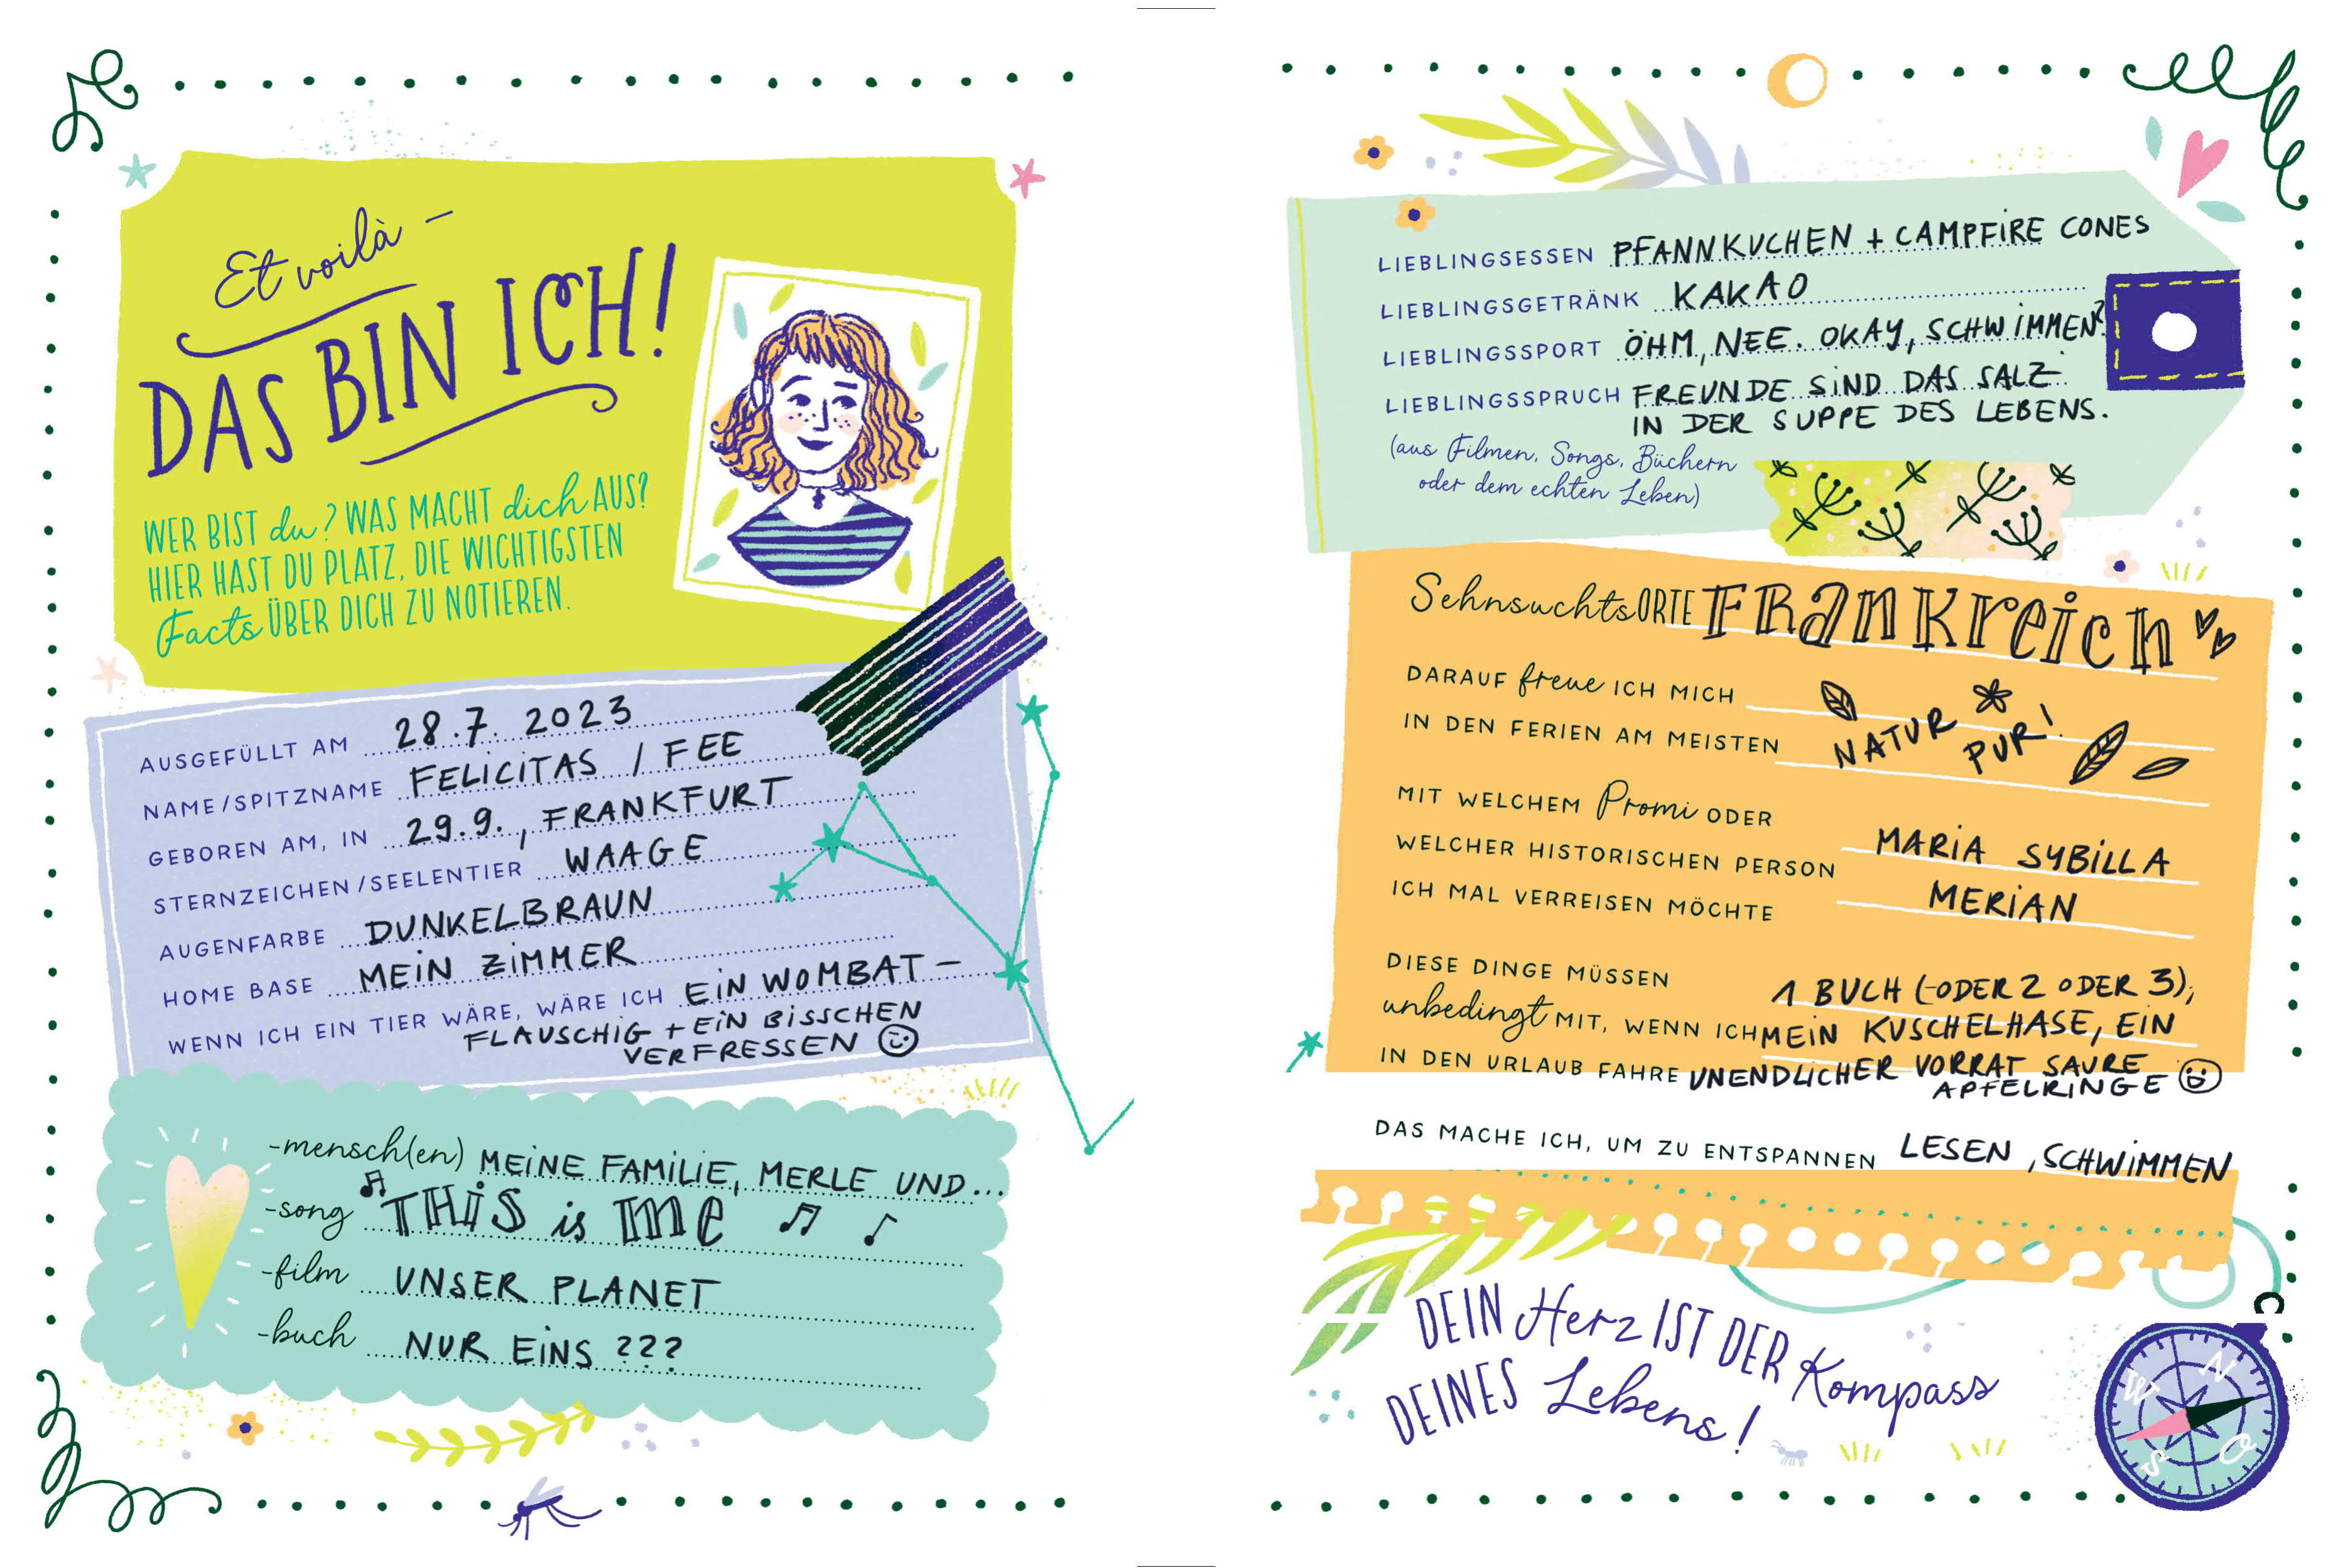 Et voilà –
DAS BIN ICH!
WER BIST du? WAS MACHT dich AUS?
HIER HAST DU PLATZ, DIE WICHTIGSTEN
Facts ÜBER DICH ZU NOTIEREN.
AUSGEFÜLLT AM 28.7. 2023
NAME/SPITZNAME FELICITAS / FEE
GEBOREN AM, IN 29.9., FRANKFURT
STERNZEICHEN/SEELENTIER WAAGE
AUGENFARBE DUNKELBRAUN
HOME BASE MEIN ZIMMER
WENN ICH EIN TIER WÄRE, WÄRE ICH EIN WOMBAT –
FLAUSCHIG + EIN BISSCHEN
VERFRESSEN
-mensch(en) MEINE FAMILIE, MERLE UND...
-song THIS is ME
-film UNSER PLANET
-buch NUR EINS ???
LIEBLINGSESSEN PFANNKUCHEN + CAMPFIRE CONES
LIEBLINGSGETRÄNK KAKAO
LIEBLINGSSPORT ÖHM, NEE. OKAY, SCHWIMMEN?
LIEBLINGSSPRUCH FREUNDE SIND DAS SALZ
IN DER SUPPE DES LEBENS.
(aus Filmen, Songs, Büchern
oder dem echten Leben)
SehnsuchtsORTE FRANKREICH
DARAUF freue ICH MICH
IN DEN FERIEN AM MEISTEN NATUR PUR!
MIT WELCHEM Promi ODER
WELCHER HISTORISCHEN PERSON MARIA SYBILLA
ICH MAL VERREISEN MÖCHTE MERIAN
DIESE DINGE MÜSSEN 1 BUCH (ODER 2 ODER 3),
unbedingt MIT, WENN ICH MEIN KUSCHELHASE, EIN
IN DEN URLAUB FAHRE UNENDLICHER VORRAT SAURE
APFELRINGE
DAS MACHE ICH, UM ZU ENTSPANNEN LESEN, SCHWIMMEN
DEIN Herz IST DER Kompass
DEINES Lebens!
N
W
O
S